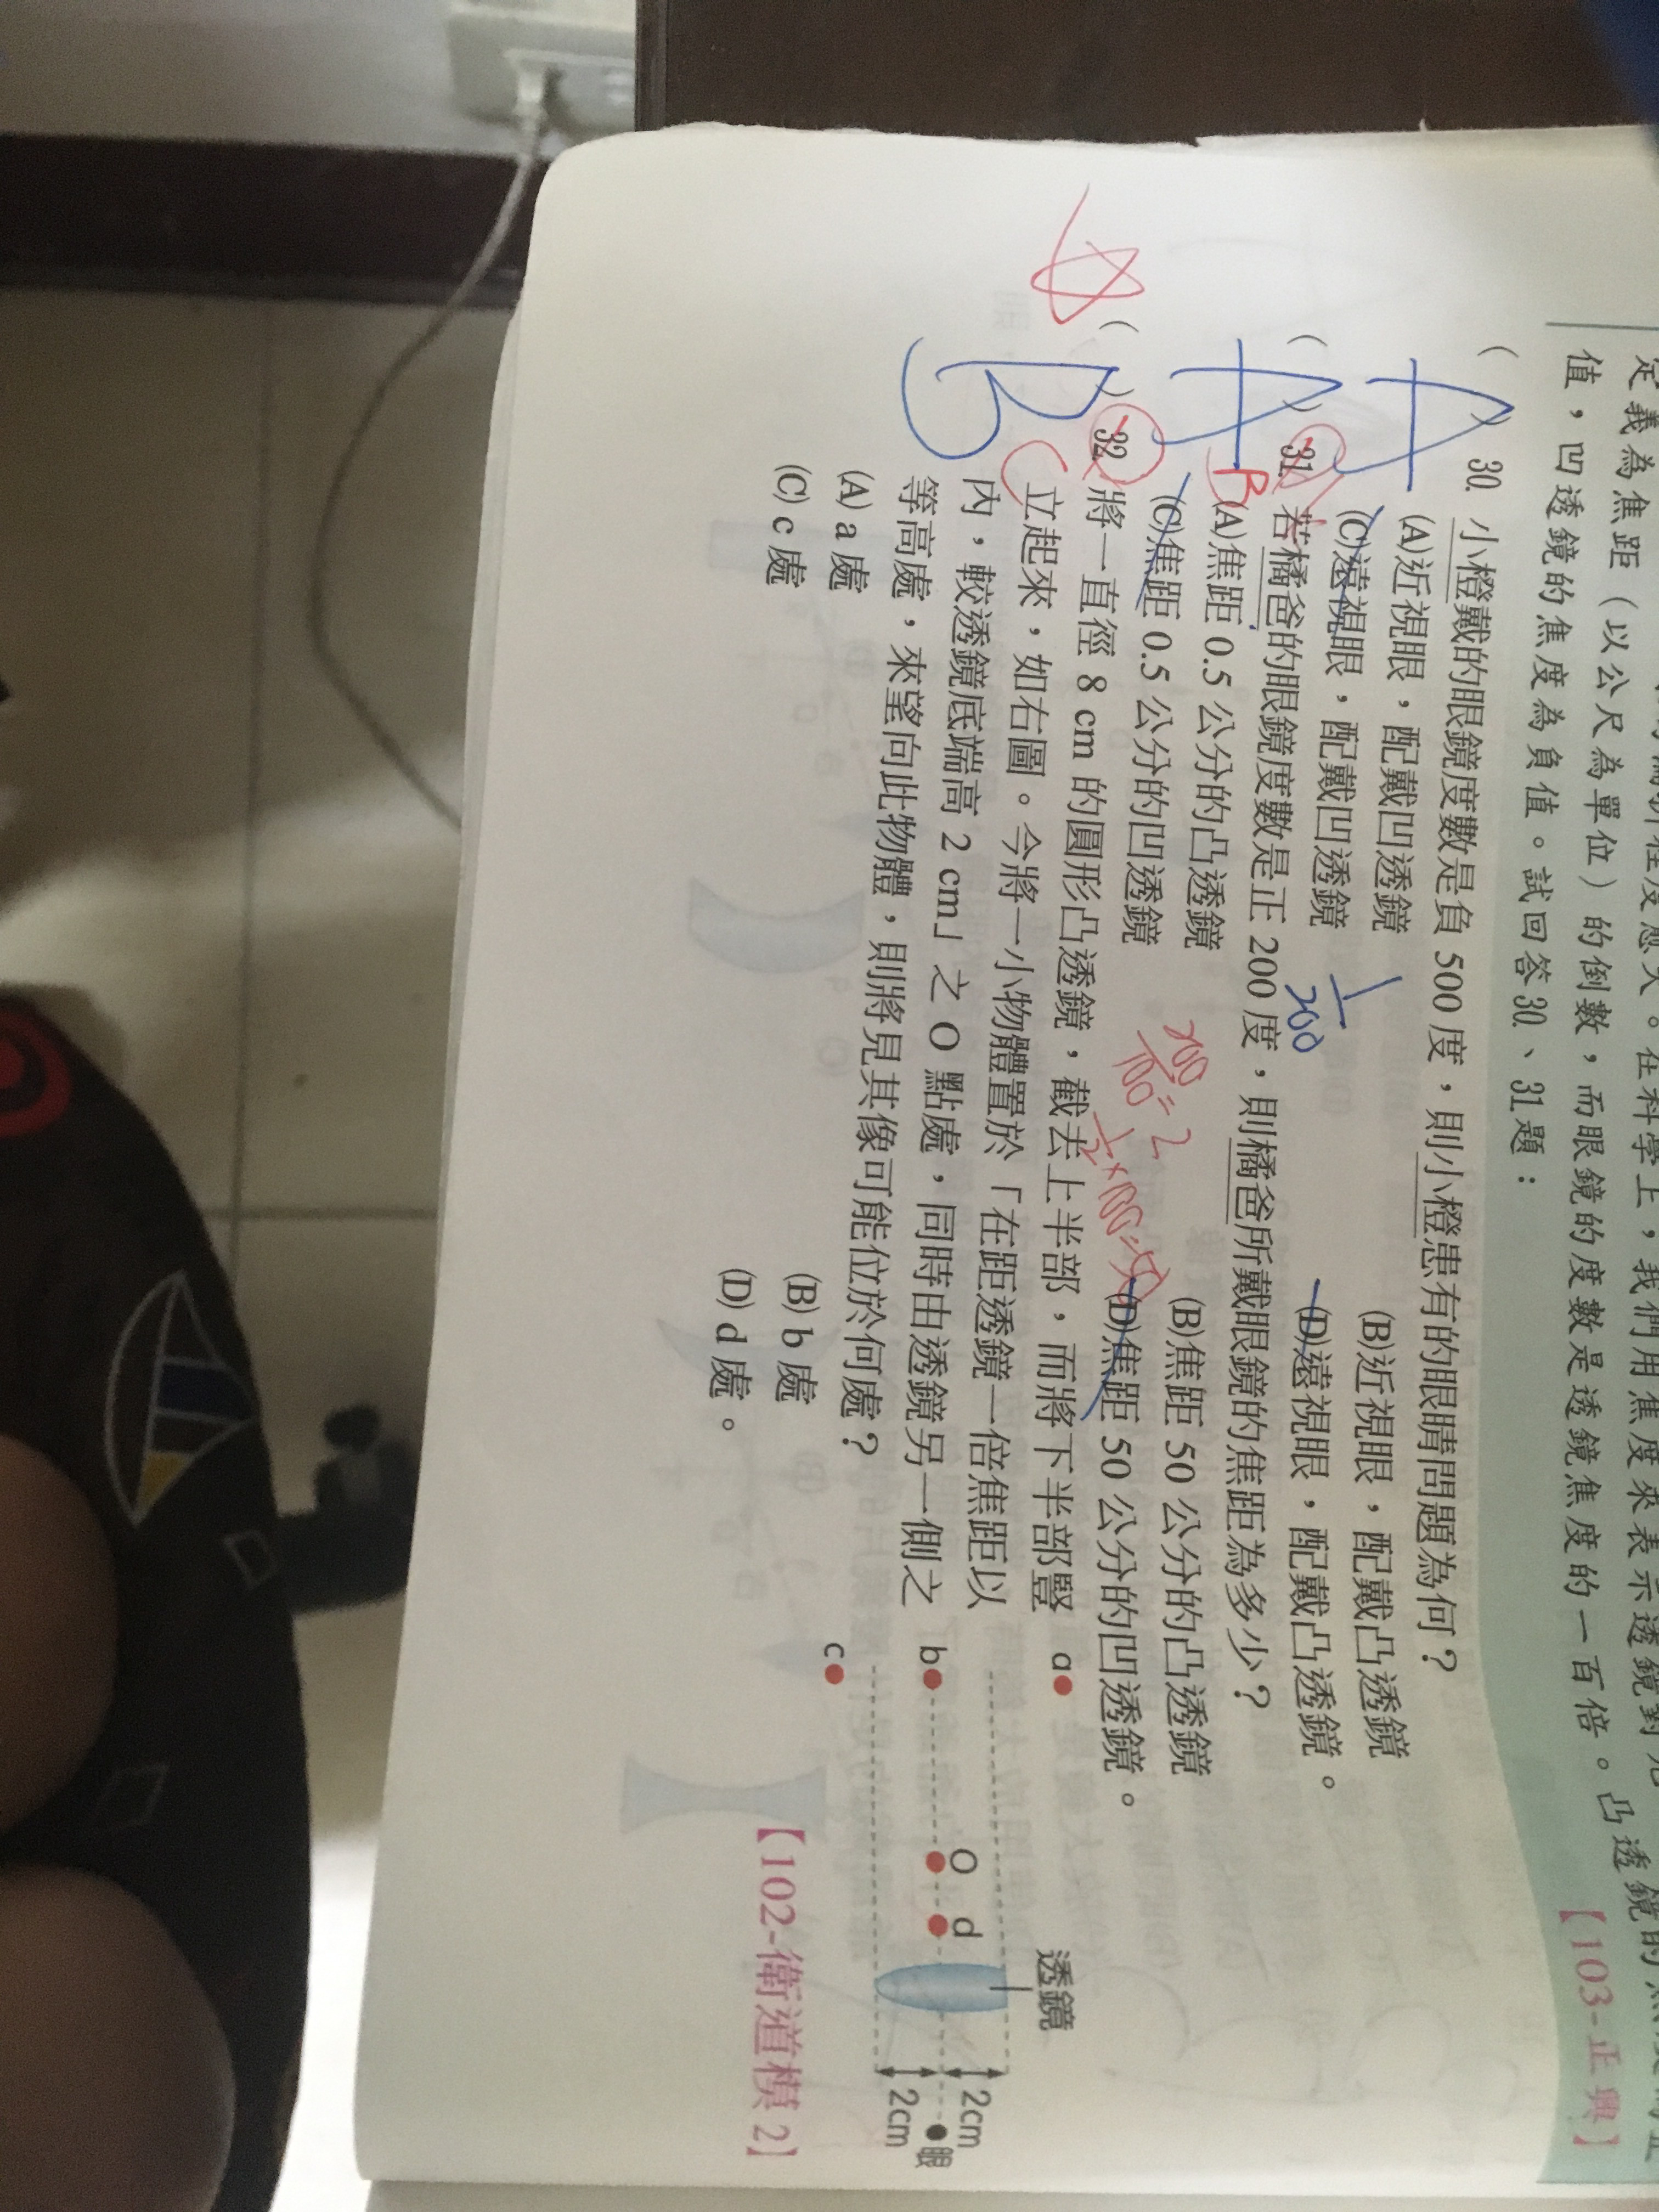 值，凹透鏡的焦度為負值。試回答30.、31.題：
定義為焦距（以公尺為單位）的倒數，而眼鏡的度數是透鏡焦度的一百倍。凸透鏡的
【103-正興】
( A ) 30. 小橙戴的眼鏡度數是負 500 度，則小橙患有的眼睛問題為何？
(A)近視眼，配戴凹透鏡 (B)近視眼，配戴凸透鏡
(C)遠視眼，配戴凹透鏡 (D)遠視眼，配戴凸透鏡。
( A ) 31. 若橘爸的眼鏡度數是正 200 度，則橘爸所戴眼鏡的焦距為多少？
B
1/200
(A)焦距 0.5 公分的凸透鏡 (B)焦距 50 公分的凸透鏡
200/100=2
(C)焦距 0.5 公分的凹透鏡 (D)焦距 50 公分的凹透鏡。
( B ) 32. 將一直徑 8 cm 的圓形凸透鏡，截去上半部，而將下半部豎
C
立起來，如右圖。今將一小物體置於「在距透鏡一倍焦距以
內，較透鏡底端高 2 cm」之 O 點處，同時由透鏡另一側之
等高處，來望向此物體，則將見其像可能位於何處？
(A) a 處 (B) b 處
(C) c 處 (D) d 處。
透鏡
a
b
c
O d
2cm
2cm
眼
【102-衛道模 2】